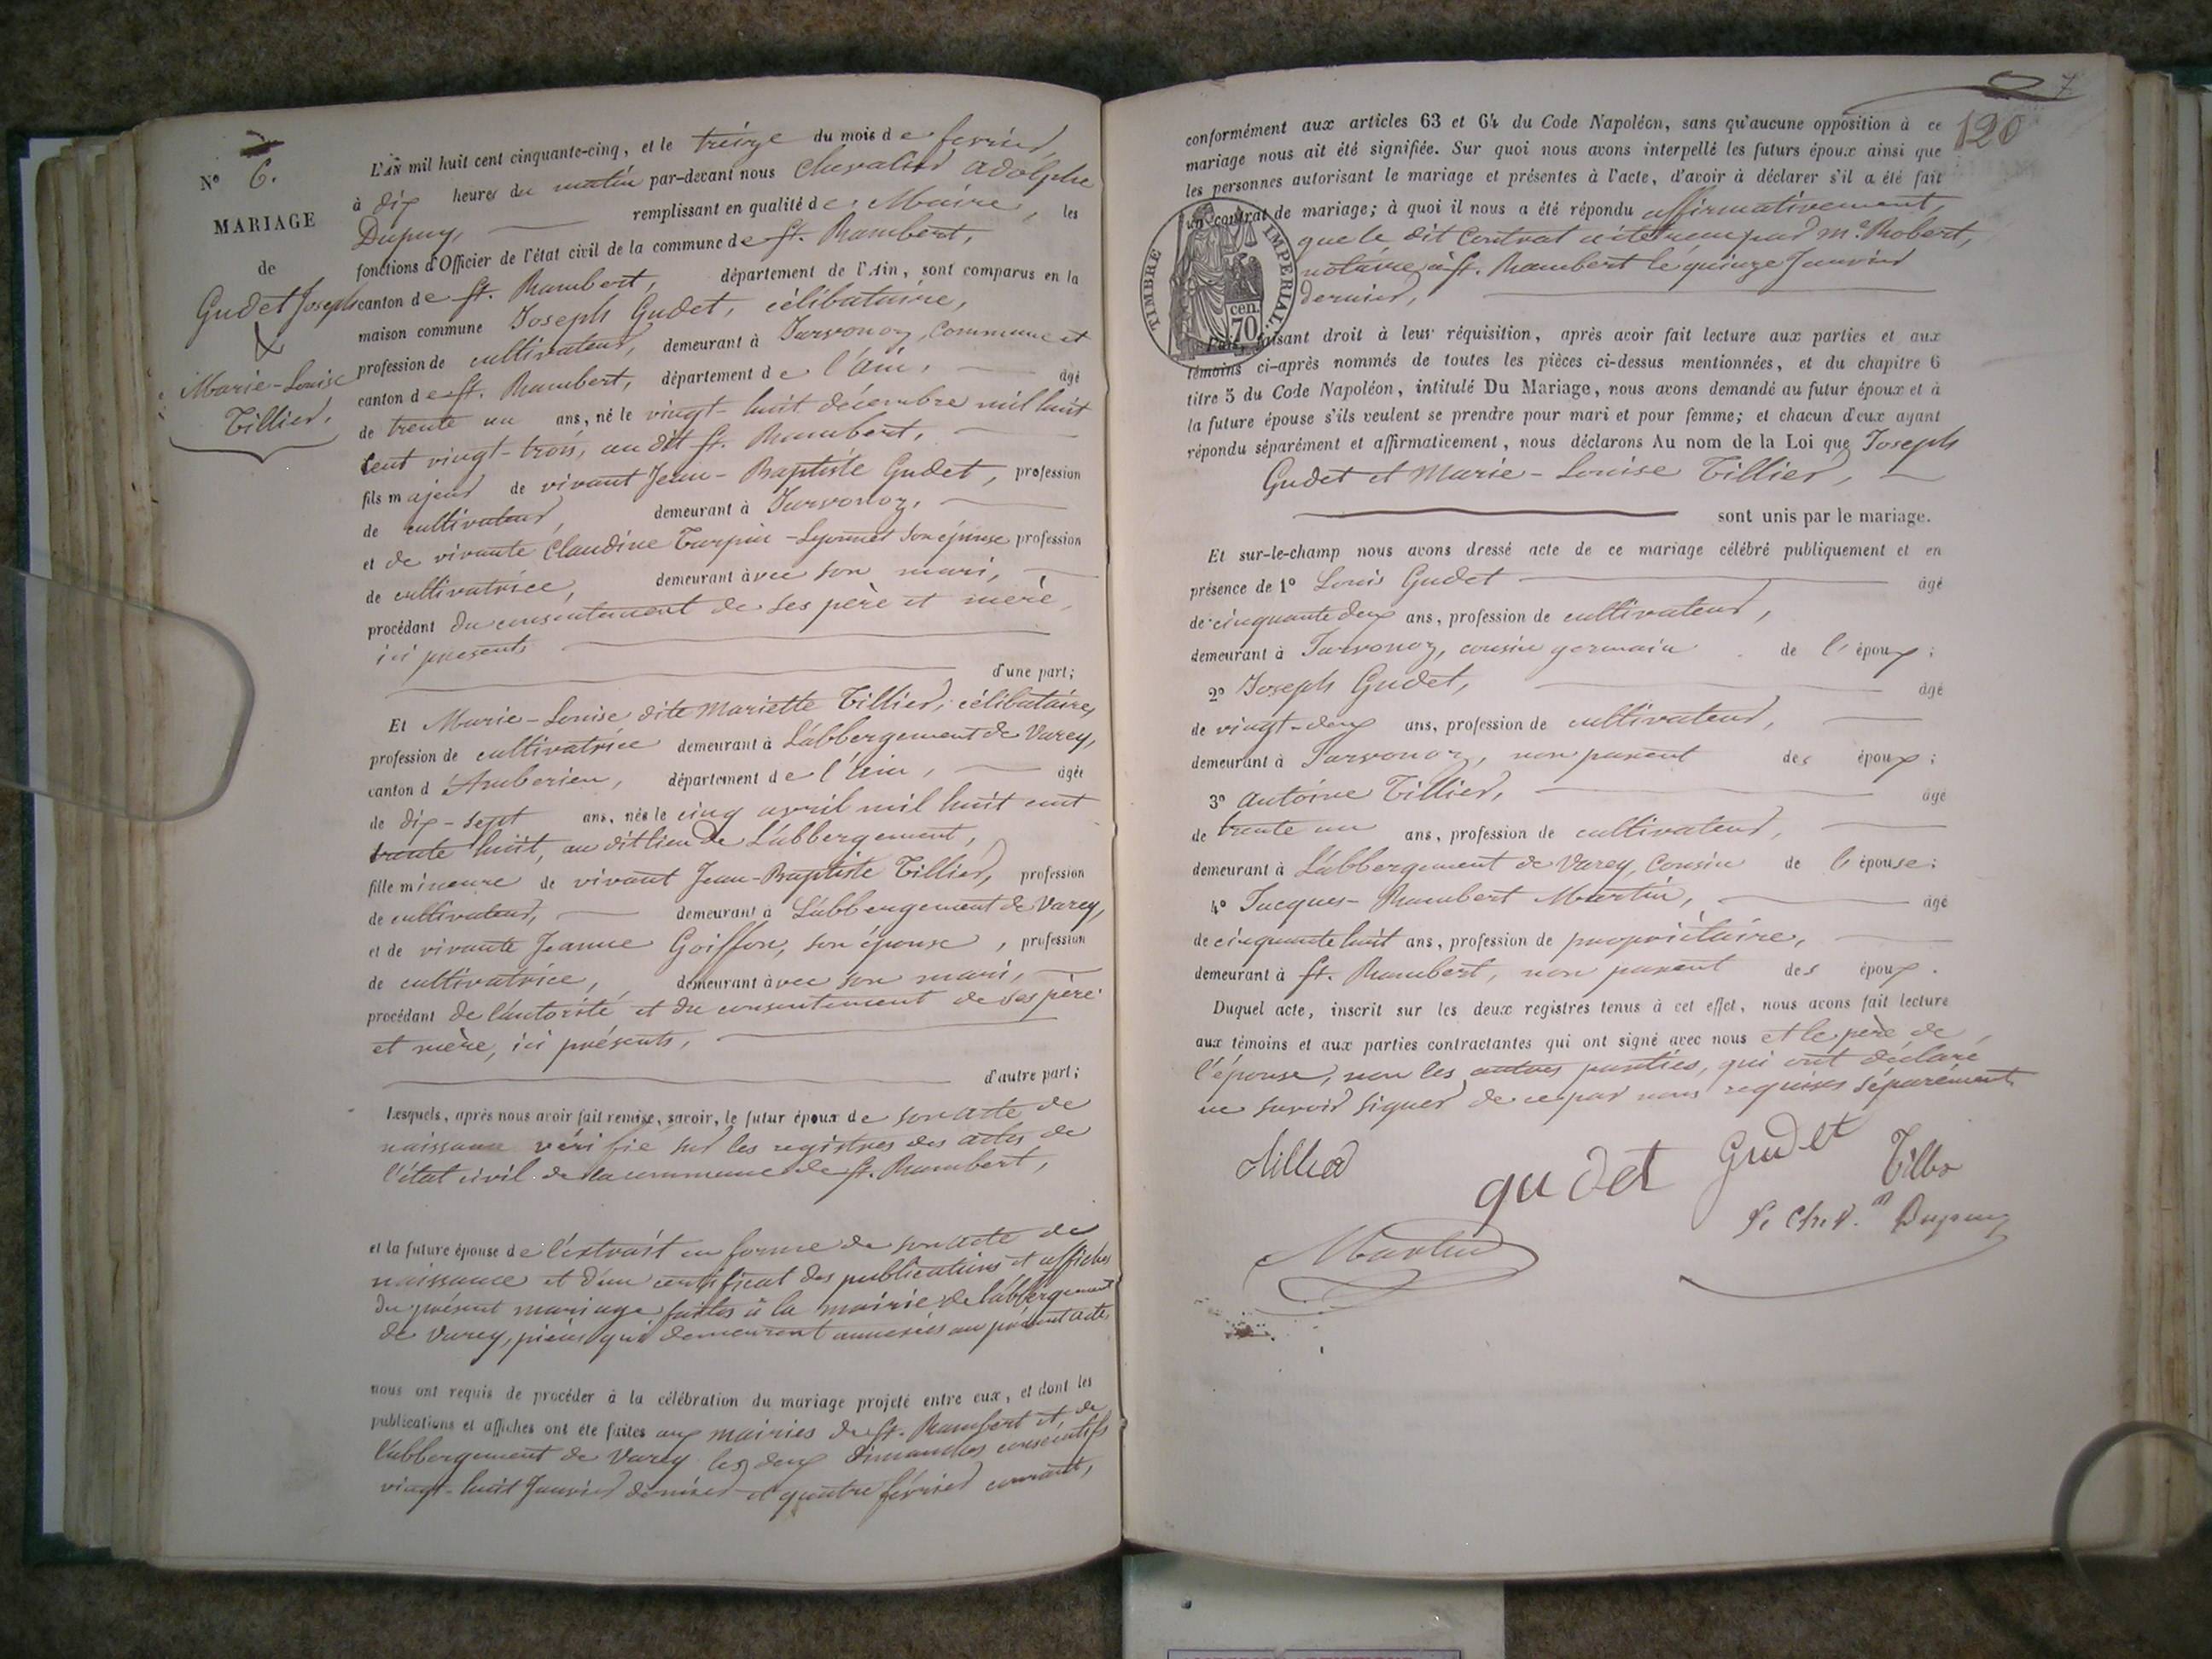 N° 6.
MARIAGE
de
Gudet Joseph
&
Marie-Louise
Tillier.
L'AN mil huit cent cinquante-cinq, et le treize du mois de fevrier,
à dix heures du matin par-devant nous Chevalier Adolphe
Dupuy, remplissant en qualité de Maire, les
fonctions d'Officier de l'état civil de la commune de St. Rambert,
canton de St. Rambert, département de l'Ain, sont comparus en la
maison commune Joseph Gudet, célibataire,
profession de cultivateur, demeurant à Javornoz, commune et
canton de St. Rambert, département de l'ain, âgé
de trente un ans, né le vingt-huit décembre mil huit
cent vingt-trois, au dit St. Rambert,
fils majeur de vivant Jean-Baptiste Gudet, profession
de cultivateur, demeurant à Javornoz,
et de vivante Claudine Turpin-Lyonnet son épouse profession
de cultivatrice, demeurant àvec son mari,
procédant du consentement de ses père et mère,
ici presents
d'une part;
Et Marie-Louise dite Mariette Tillier, célibataire,
profession de cultivatrice demeurant à L'abbergement de Varey,
canton d'Amberieu, département de l'ain, âgée
de dix-sept ans, née le cinq avril mil huit cent
trente huit, au dit lieu de L'abbergement,
fille mineure de vivant Jean-Baptiste Tillier, profession
de cultivateur, demeurant à L'abbergement de Varey,
et de vivante Jeanne Goiffon, son épouse, profession
de cultivatrice, demeurant àvec son mari,
procédant de l'autorité et du consentement de ses père
et mère, ici présents,
d'autre part;
Lesquels, après nous avoir fait remise, savoir, le futur époux de son acte de
naissance vérifié sur les registres des actes de
l'état civil de la commune de St. Rambert,
et la future épouse de l'extrait en forme de son acte de
naissance et d'un certificat des publications et affiches
du présent mariage faites à la mairie de l'abbergement
de Varey, pièces qui demeurent annexées au présent acte,
nous ont requis de procéder à la célébration du mariage projeté entre eux, et dont les
publications et affiches ont été faites aux mairies de St. Rambert et de
l'abbergement de Varey les deux dimanches consécutifs
vingt-huit Janvier dernier et quatre février courant,
7
120
conformément aux articles 63 et 64 du Code Napoléon, sans qu'aucune opposition à ce
mariage nous ait été signifiée. Sur quoi nous avons interpellé les futurs époux ainsi que
les personnes autorisant le mariage et présentes à l'acte, d'avoir à déclarer s'il a été fait
un contrat de mariage; à quoi il nous a été répondu affirmativement,
que le dit contrat a été reçu par me. Robert,
notaire à St. Rambert le quinze Janvier
dernier,
TIMBRE IMPERIAL.
cen.
70
Puis, faisant droit à leur réquisition, après avoir fait lecture aux parties et aux
témoins ci-après nommés de toutes les pièces ci-dessus mentionnées, et du chapitre 6
titre 5 du Code Napoléon, intitulé Du Mariage, nous avons demandé au futur époux et à
la future épouse s'ils veulent se prendre pour mari et pour femme; et chacun d'eux ayant
répondu séparément et affirmativement, nous déclarons Au nom de la Loi que Joseph
Gudet et Marie-Louise Tillier,
sont unis par le mariage.
Et sur-le-champ nous avons dressé acte de ce mariage célébré publiquement et en
présence de 1° Louis Gudet âgé
de cinquante deux ans, profession de cultivateur,
demeurant à Javornoz, cousin germain de l'époux;
2° Joseph Gudet, âgé
de vingt-deux ans, profession de cultivateur,
demeurant à Javornoz, non parent des époux;
3° Antoine Tillier, âgé
de trente un ans, profession de cultivateur,
demeurant à L'abbergement de Varey, Cousin de l'épouse;
4° Jacques-Rambert Martin, âgé
de cinquante huit ans, profession de propriétaire,
demeurant à St. Rambert, non parent des époux.
Duquel acte, inscrit sur les deux registres tenus à cet effet, nous avons fait lecture
aux témoins et aux parties contractantes qui ont signé avec nous et le père de
l'épouse, non les autres parties, qui ont déclaré
ne savoir signer de ce par nous requises séparément
gudet Gudet
Martin Dupuy